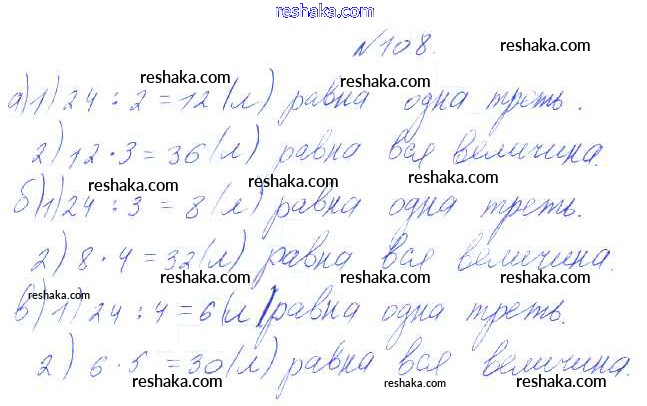 reshaka.com
№108. reshaka.com
reshaka.com reshaka.com
а) 1) 24 : 2 = 12 (л) равна одна треть.
reshaka.com reshaka.com
2) 12 · 3 = 36 (л) равна вся величина.
reshaka.com reshaka.com
б) 1) 24 : 3 = 8 (л) равна одна треть.
reshaka.com reshaka.com
2) 8 · 4 = 32 (л) равна вся величина.
reshaka.com reshaka.com
в) 1) 24 : 4 = 6 (л) равна одна треть.
reshaka.com reshaka.com
2) 6 · 5 = 30 (л) равна вся величина.
reshaka.com reshaka.com